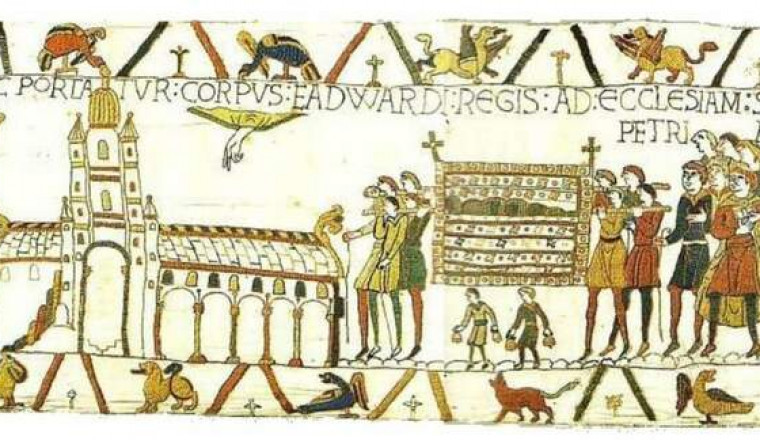 PORTATVR : CORPVS : EADWARDI : REGIS : AD : ECCLESIAM : S
PETRI